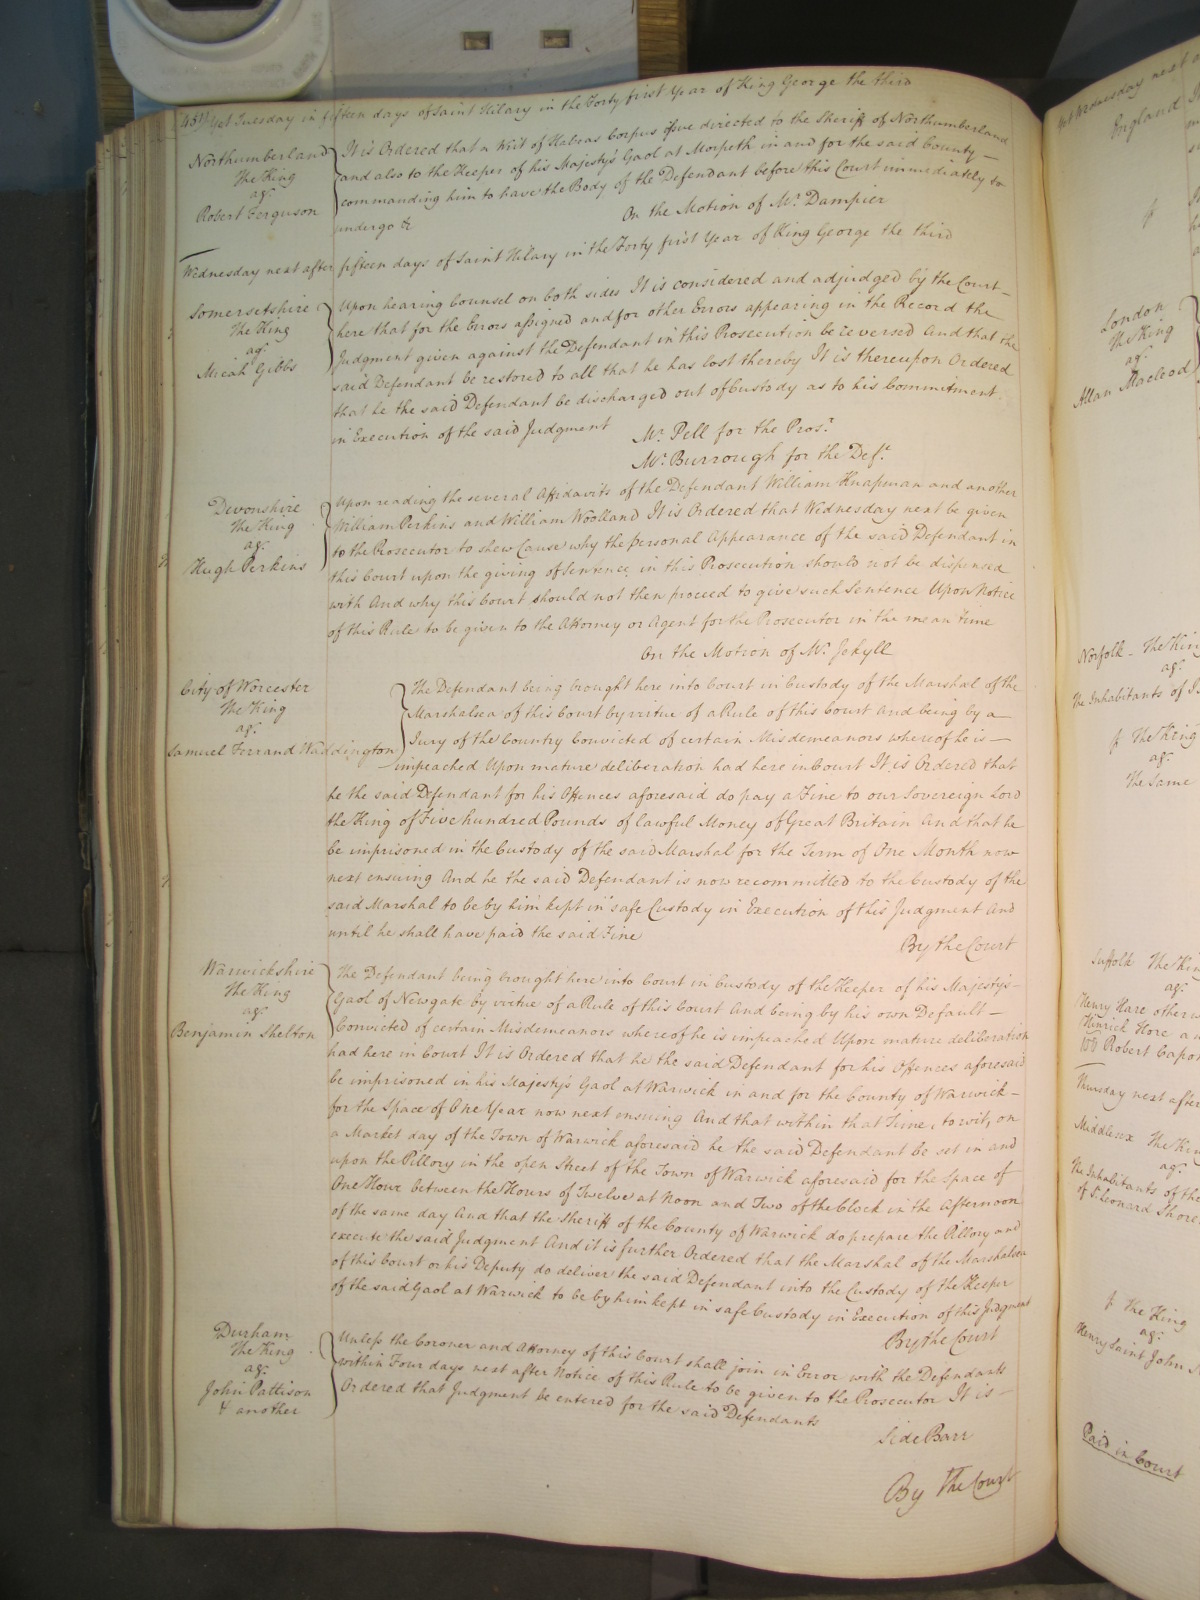 451 Yet Tuesday in fifteen days of Saint Hilary in the Forty first Year of King George the third
Northumberland
The King
agt
Robert Ferguson
It is Ordered that a Writ of Habeas Corpus issue directed to the Sheriff of Northumberland
and also to the Keeper of his Majesty's Gaol at Morpeth in and for the said County —
commanding him to have the Body of the Defendant before this Court immediately to
undergo &c
On the Motion of Mr. Dampier
Wednesday next after fifteen days of Saint Hilary in the Forty first Year of King George the third
Somersetshire
The King
agt
Micah Gibbs
Upon hearing Counsel on both sides It is considered and adjudged by the Court —
here that for the Errors assigned and for other Errors appearing in the Record the
Judgment given against the Defendant in this Prosecution be reversed And that the
said Defendant be restored to all that he has lost thereby It is thereupon Ordered
that he the said Defendant be discharged out of Custody as to his Commitment
in Execution of the said Judgment
Mr. Pell for the Prosr.
Mr. Burrough for the Deft.
Devonshire
The King
agt
Hugh Perkins
Upon reading the several Affidavits of the Defendant William Knapman and another
William Perkins and William Woolland It is Ordered that Wednesday next be given
to the Prosecutor to shew Cause why the personal Appearance of the said Defendant in
this Court upon the giving of Sentence in this Prosecution should not be dispensed
with And why this Court should not then proceed to give such Sentence Upon Notice
of this Rule to be given to the Attorney or Agent for the Prosecutor in the mean time
On the Motion of Mr. Jekyll
City of Worcester
The King
agt
Samuel Ferrand Waddington
The Defendant being brought here into Court in Custody of the Marshal of the
Marshalsea of this Court by virtue of a Rule of this Court And being by a —
Jury of the Country Convicted of certain Misdemeanors whereof he is —
impeached Upon mature deliberation had here in Court It is Ordered that
he the said Defendant for his Offences aforesaid do pay a Fine to our Sovereign Lord
the King of Five hundred Pounds of lawful Money of Great Britain And that he
be imprisoned in the Custody of the said Marshal for the Term of One Month now
next ensuing And he the said Defendant is now recommitted to the Custody of the
said Marshal to be by him kept in safe Custody in Execution of this Judgment And
until he shall have paid the said Fine
By the Court
Warwickshire
The King
agt
Benjamin Shelton
The Defendant being brought here into Court in Custody of the Keeper of his Majesty's —
Gaol of Newgate by virtue of a Rule of this Court And being by his own Default —
Convicted of certain Misdemeanors whereof he is impeached Upon mature deliberation
had here in Court It is Ordered that he the said Defendant for his Offences aforesaid
be imprisoned in his Majesty's Gaol at Warwick in and for the County of Warwick —
for the Space of One Year now next ensuing And that within that Time, to wit, on
a Market day of the Town of Warwick aforesaid he the said Defendant be set in and
upon the Pillory in the open Street of the Town of Warwick aforesaid for the Space of
One Hour between the Hours of Twelve at Noon and Two of the Clock in the Afternoon
of the same day And that the Sheriff of the County of Warwick do prepare the Pillory and
execute the said Judgment And it is further Ordered that the Marshal of the Marshalsea
of this Court or his Deputy do deliver the said Defendant into the Custody of the Keeper
of the said Gaol at Warwick to be by him kept in safe Custody in Execution of this Judgment
By the Court
Durham
The King
agt
John Pattison
& another
Unless the Coroner and Attorney of this Court shall join in Error with the Defendants
within Four days next after Notice of this Rule to be given to the Prosecutor It is —
Ordered that Judgment be entered for the said Defendants
Side Barr
By The Court
Wednesday next
England
London
The King
agt
Allan Macleod
Norfolk - The King
agt
The Inhabitants of
The King
agt
The Same
Suffolk The King
agt
Henry Hare
Hinrick Hore
Robert
Thursday next after
Middlesex The King
agt
The Inhabitants of the
of St Leonard
The King
agt
Henry Saint John
Paid in Court